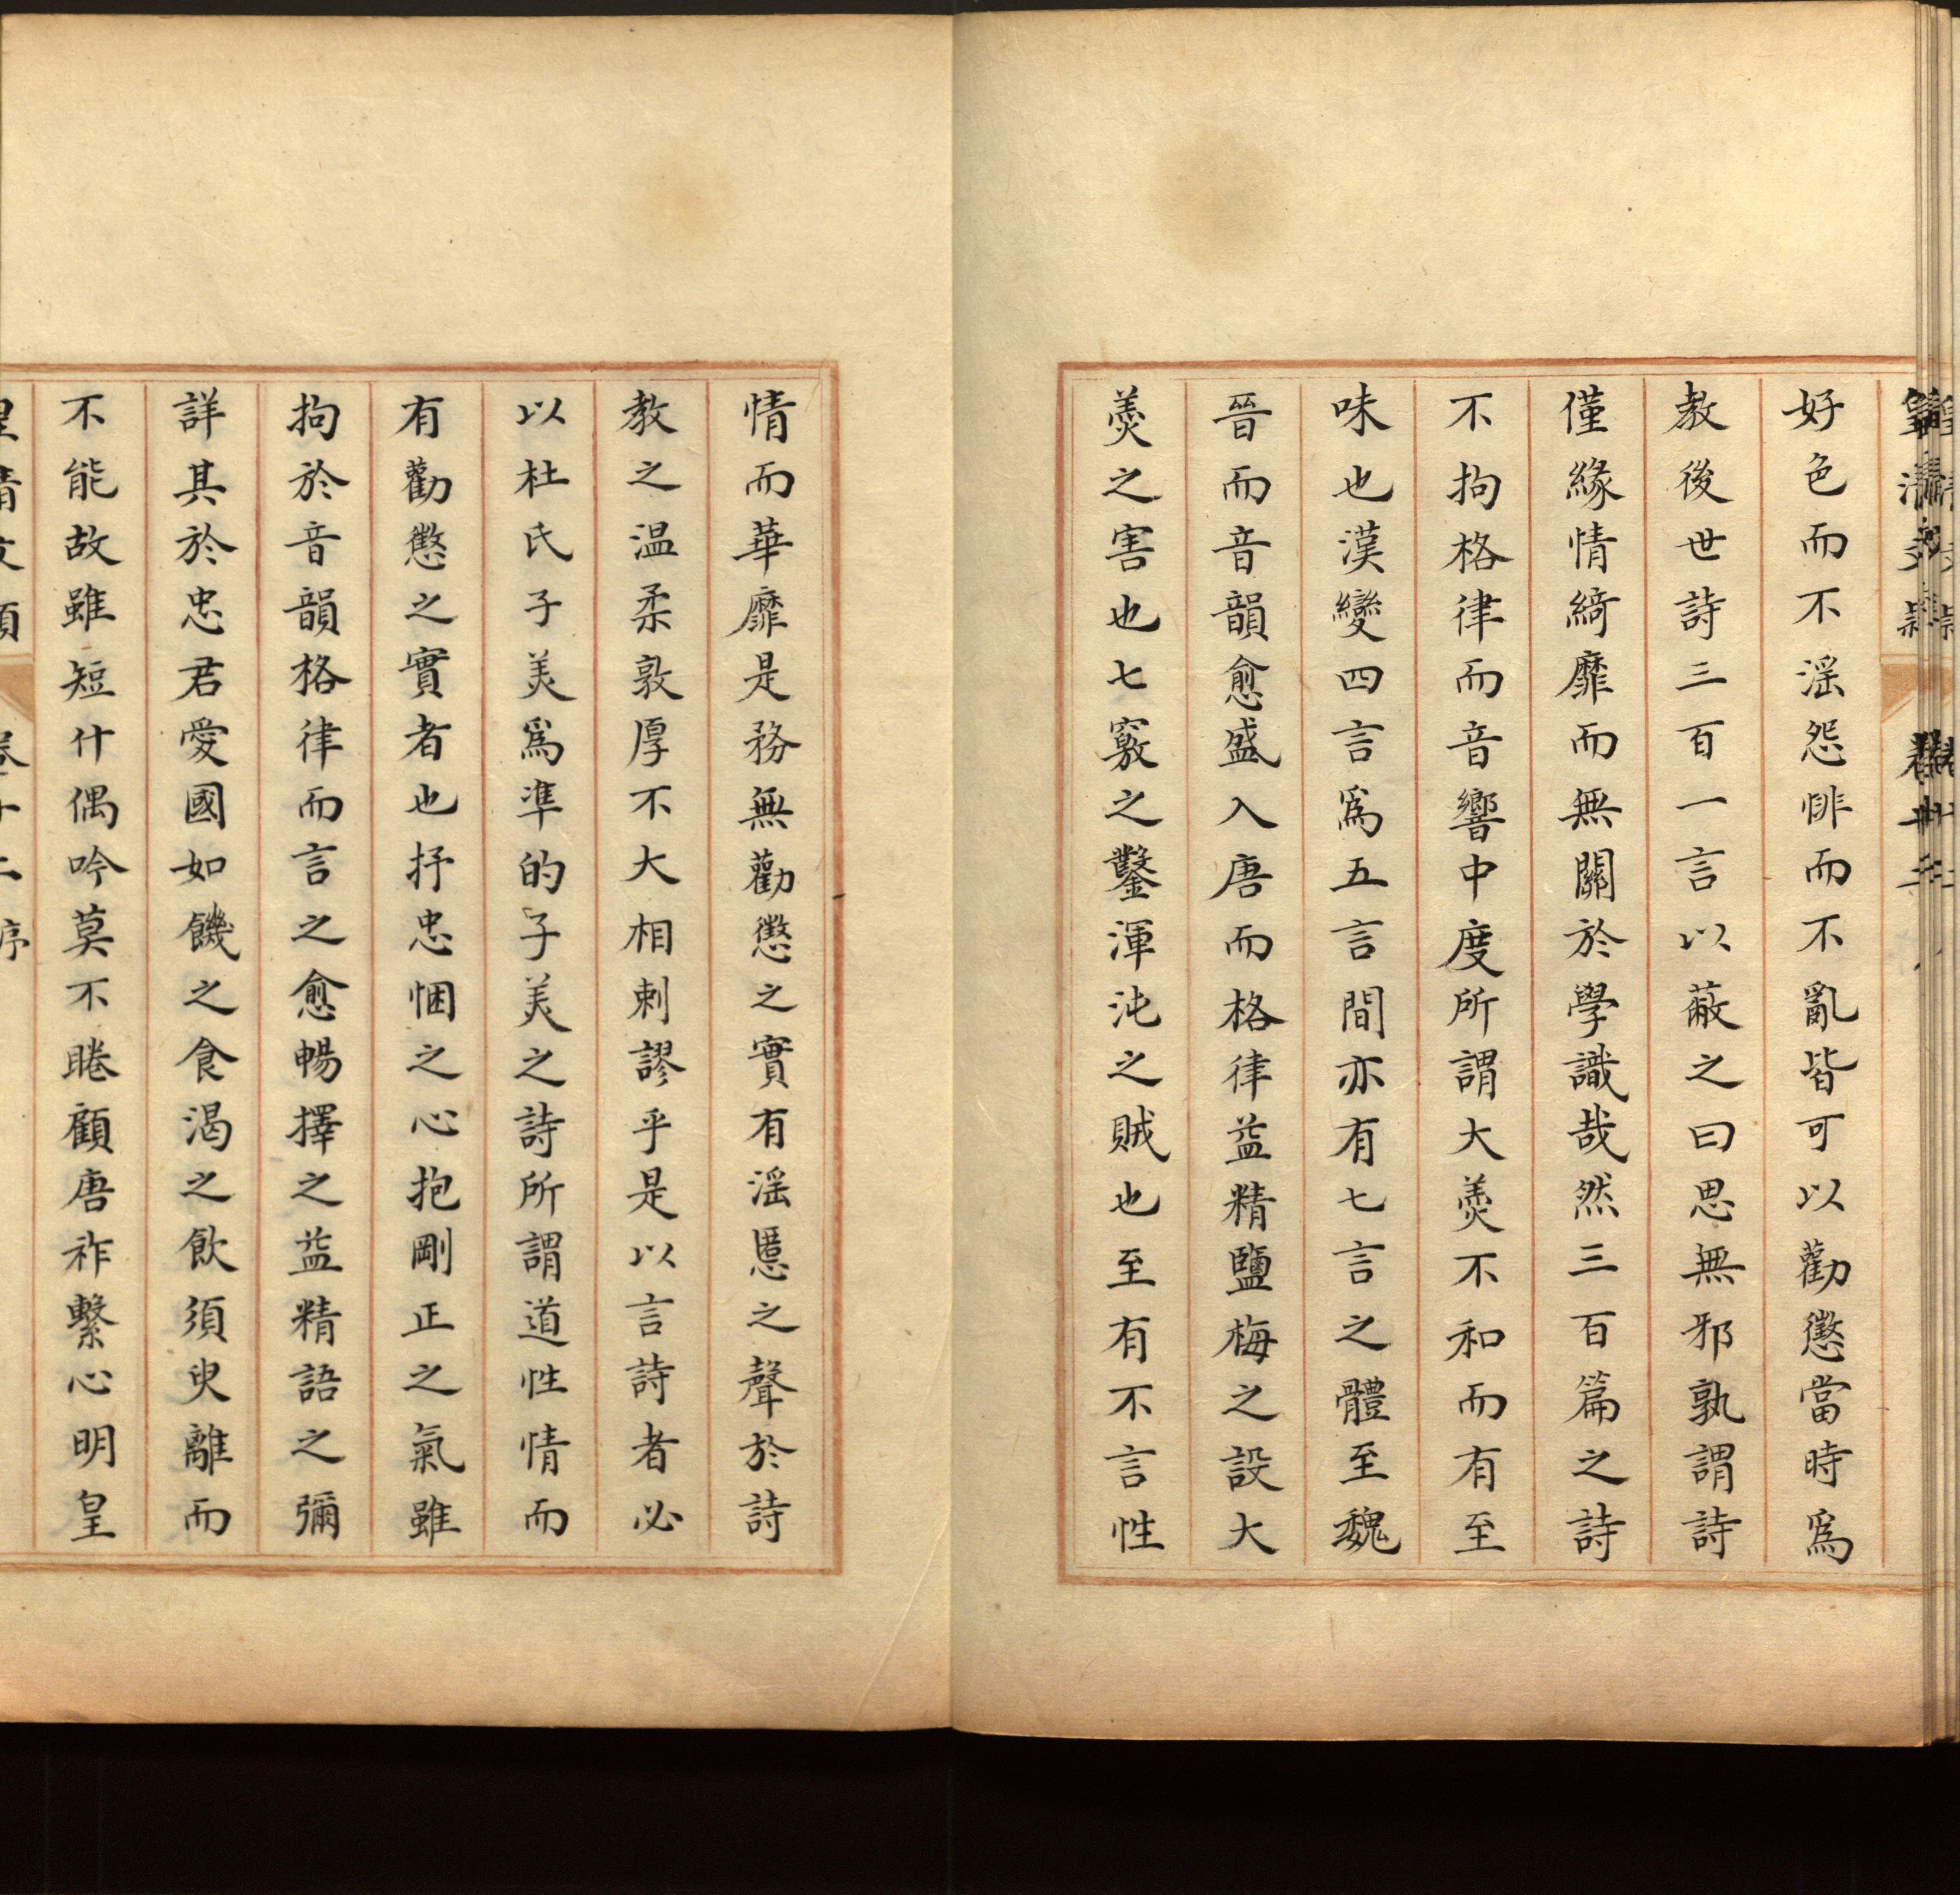 好色而不滛怨悱而不亂皆可以勸懲當時爲
教後世詩三百一言以蔽之曰思無邪孰謂詩
僅緣情綺靡而無關於學識哉然三百篇之詩
不拘格律而音響中度所謂大羮不和而有至
味也漢變四言爲五言間亦有七言之體至魏
晉而音韻愈盛入唐而格律益精鹽梅之設大
羮之害也七竅之鑿渾沌之賊也至有不言性
情而華靡是務無勸懲之實有滛慝之聲於詩
教之温柔敦厚不大相剌謬乎是以言詩者必
以杜氏子美爲凖的子美之詩所謂道性情而
有勸懲之實者也抒忠悃之心抱剛正之氣雖
拘於音韻格律而言之愈暢擇之益精語之彌
詳其於忠君愛國如饑之食渴之飲須臾離而
不能故雖短什偶吟莫不睠顧唐祚繫心明皇